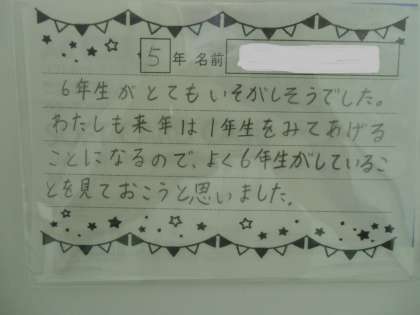 5年 名前
6年生がとてもいそがしそうでした。
わたしも来年は1年生をみてあげる
ことになるので、よく6年生がしているこ
とを見ておこうと思いました。